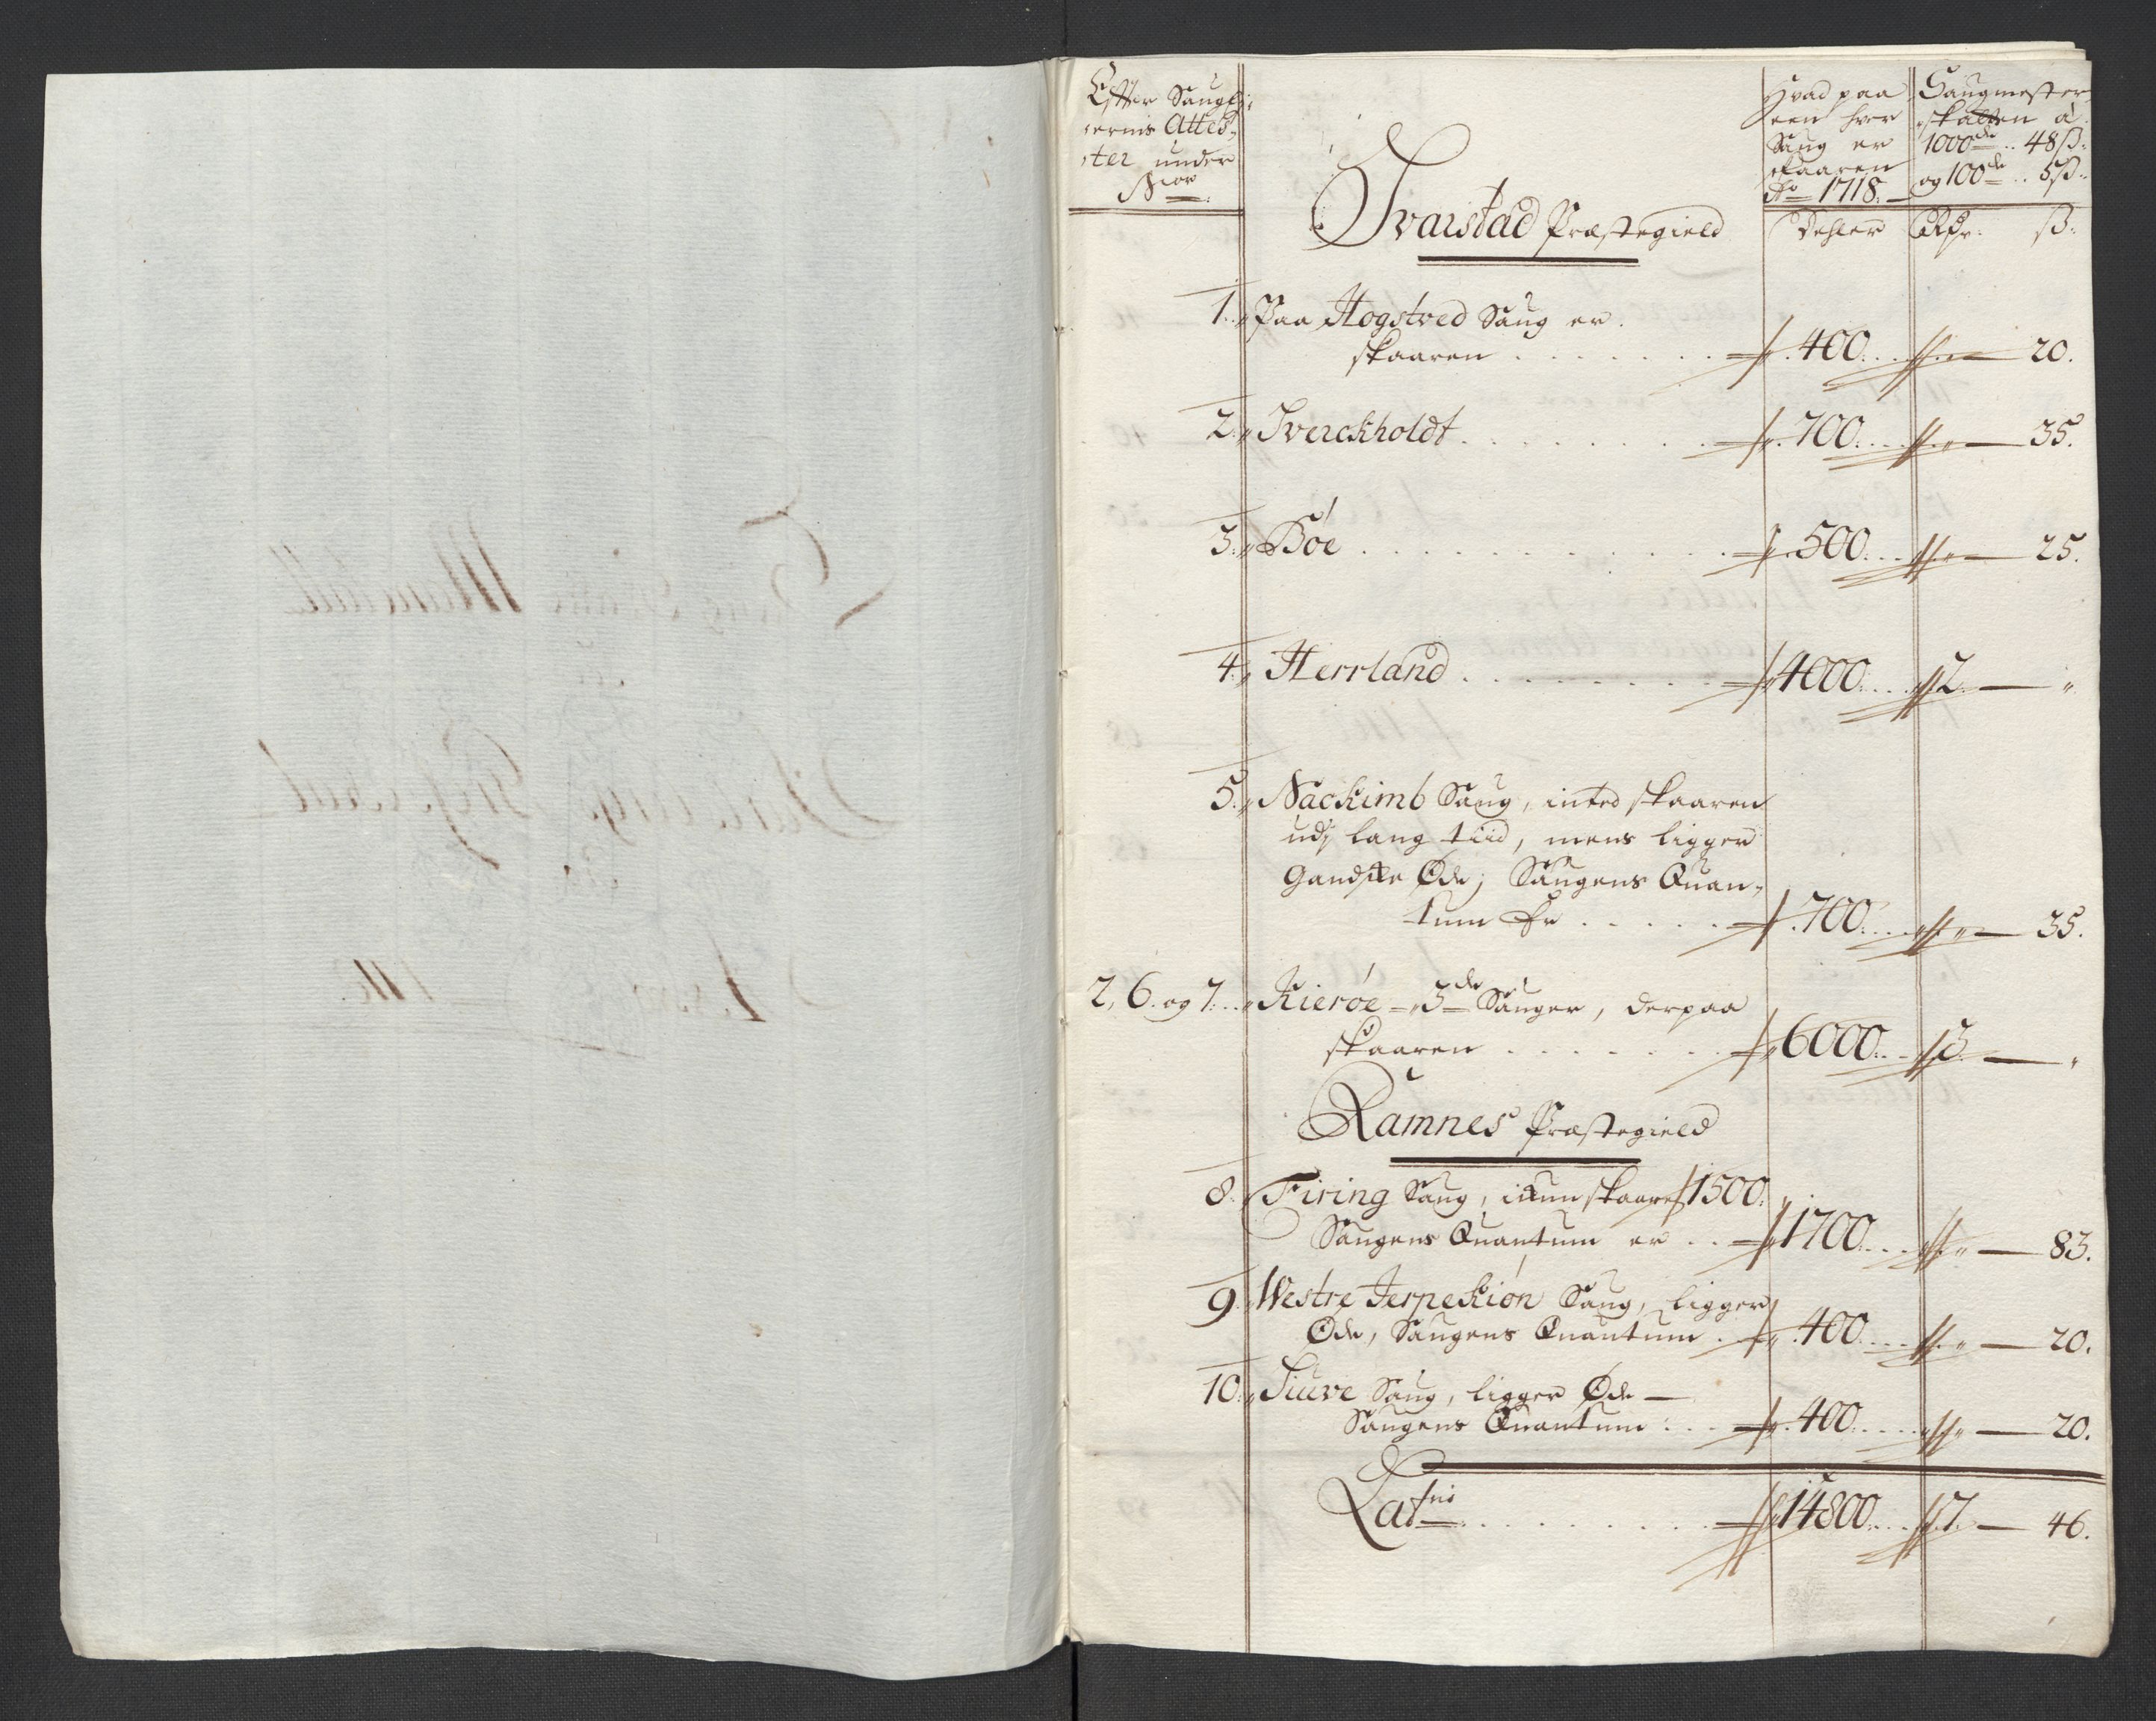 Efter Saugej:
ernis Attes,
ter under
N:ow
Hvad paa
een hver
Saug er
skaaren
Ao 1718.
Saugmester
skatten á
1000de .. 48ß:
og 100de .. 5ß.
Svarstad Præstegield
Dehler
Rdr. ß:
1. Paa Hogstved Saug er
skaaren . . . . . 400. . . 20.
2. Sverckholdt . . . . . 700. . . — 35.
3. Bøe . . . . . 500. . . — 25.
4. Herrland . . . . . 4000. . . 2. — „
5. Nackimb Saug, inted skaaren
udj lang tiid, mens ligger
Gandske Øde; Saugens Quan„
tum Er . . . . . 700. . . — 35.
2, 6. og 7. . . Kierøe — 3de Sauger, derpaa
skaaren . . . . . 6000. . . 3. — „
Ramnes Præstegield
8. Firing Saug, ikun skaaren 1500.
Saugens Quantum er . . 1700. . . — 83.
9. Westre Jerpekiøn Saug, ligger
Øde, Saugens Quantum . 400. . . — 20.
10. Siuve Saug, ligger Øde —
Saugens Quantum : . . 400. . . . — 20.
Latris . . . . . 14800. . . 7. — 46.